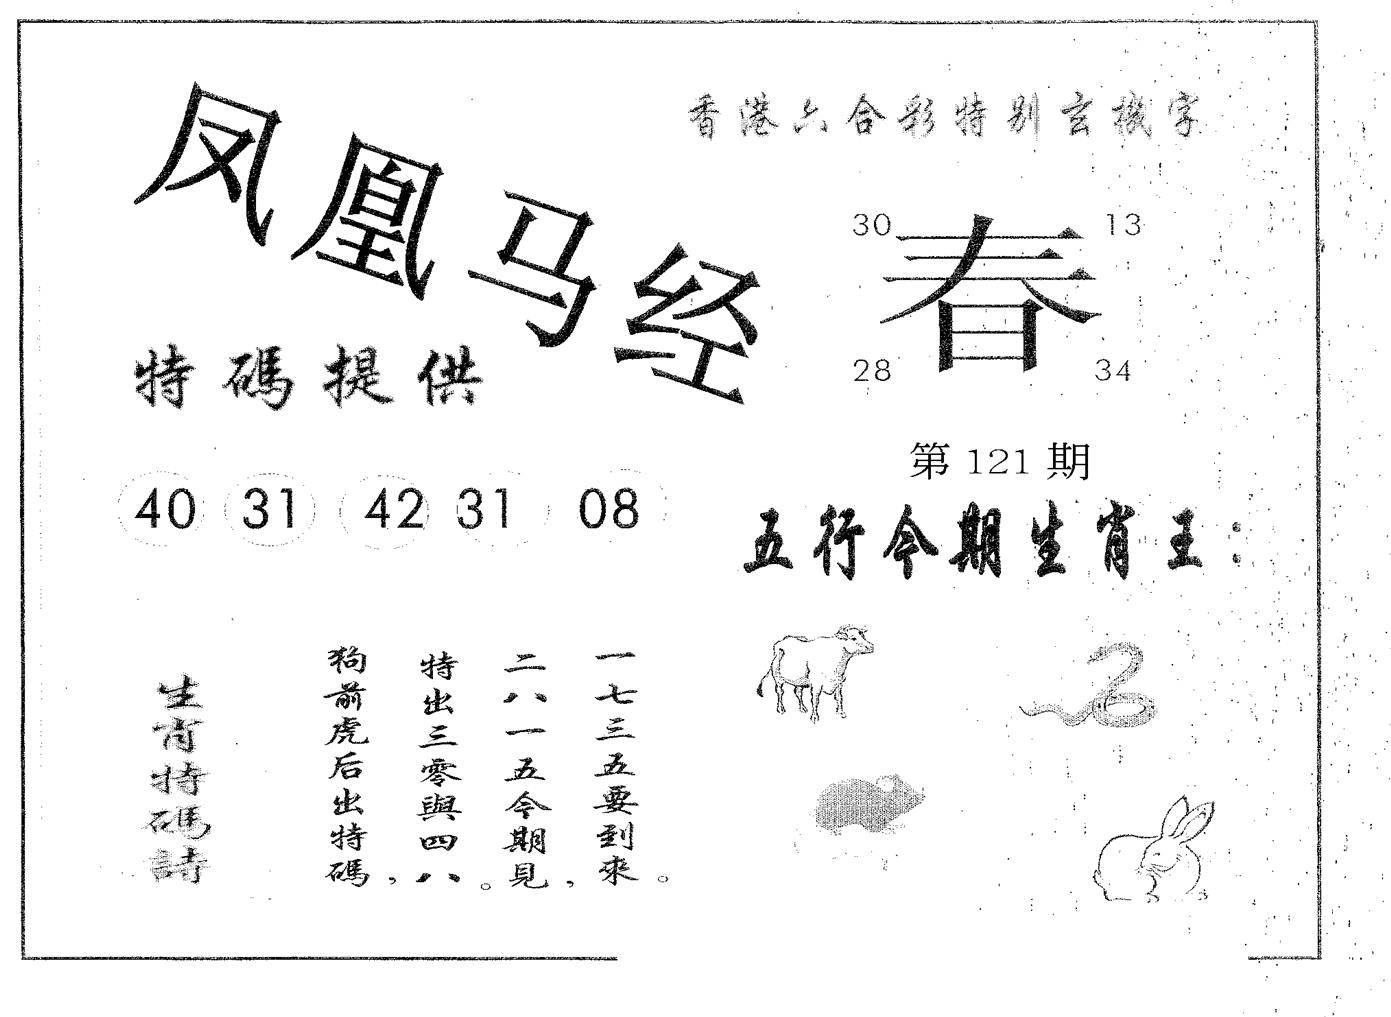 凤凰马经
香港六合彩特别玄機字
30 13
春
28 34
特碼提供
第 121 期
40 31 42 31 08
五行今期生肖王：
生肖特碼詩
狗前虎后出特碼，
特出三零與四八。
二八一五今期見，
一七三五要到來。